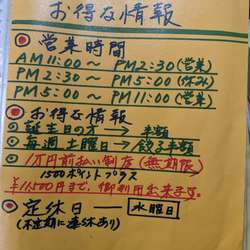 お得な情報
営業時間
AM11:00〜PM2:30(営業)
PM2:30〜PM5:00(休み)
PM5:00〜PM11:00(営業)
お得な情報
誕生日の方→半額
毎週土曜日→餃子半額
1万円前払い制度(無期限)
1500ポイントプラス
¥11500円まで、御利用出来ます。
定休日ー水曜日
(不定期に連休あり)